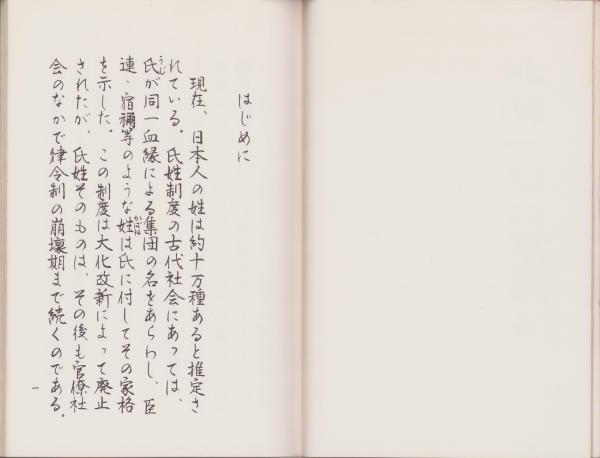 はじめに
現在、日本人の姓は約十万種あると推定さ
れている。氏姓制度の古代社会にあっては、
氏が同一血縁による集団の名をあらわし、臣
うじ
連・宿禰等のような姓は氏に付してその家格
かばね
を示した。この制度は大化改新によって廃止
されたが、氏姓そのものは、その後も官僚社
会のなかで律令制の崩壊期まで続くのである。
一